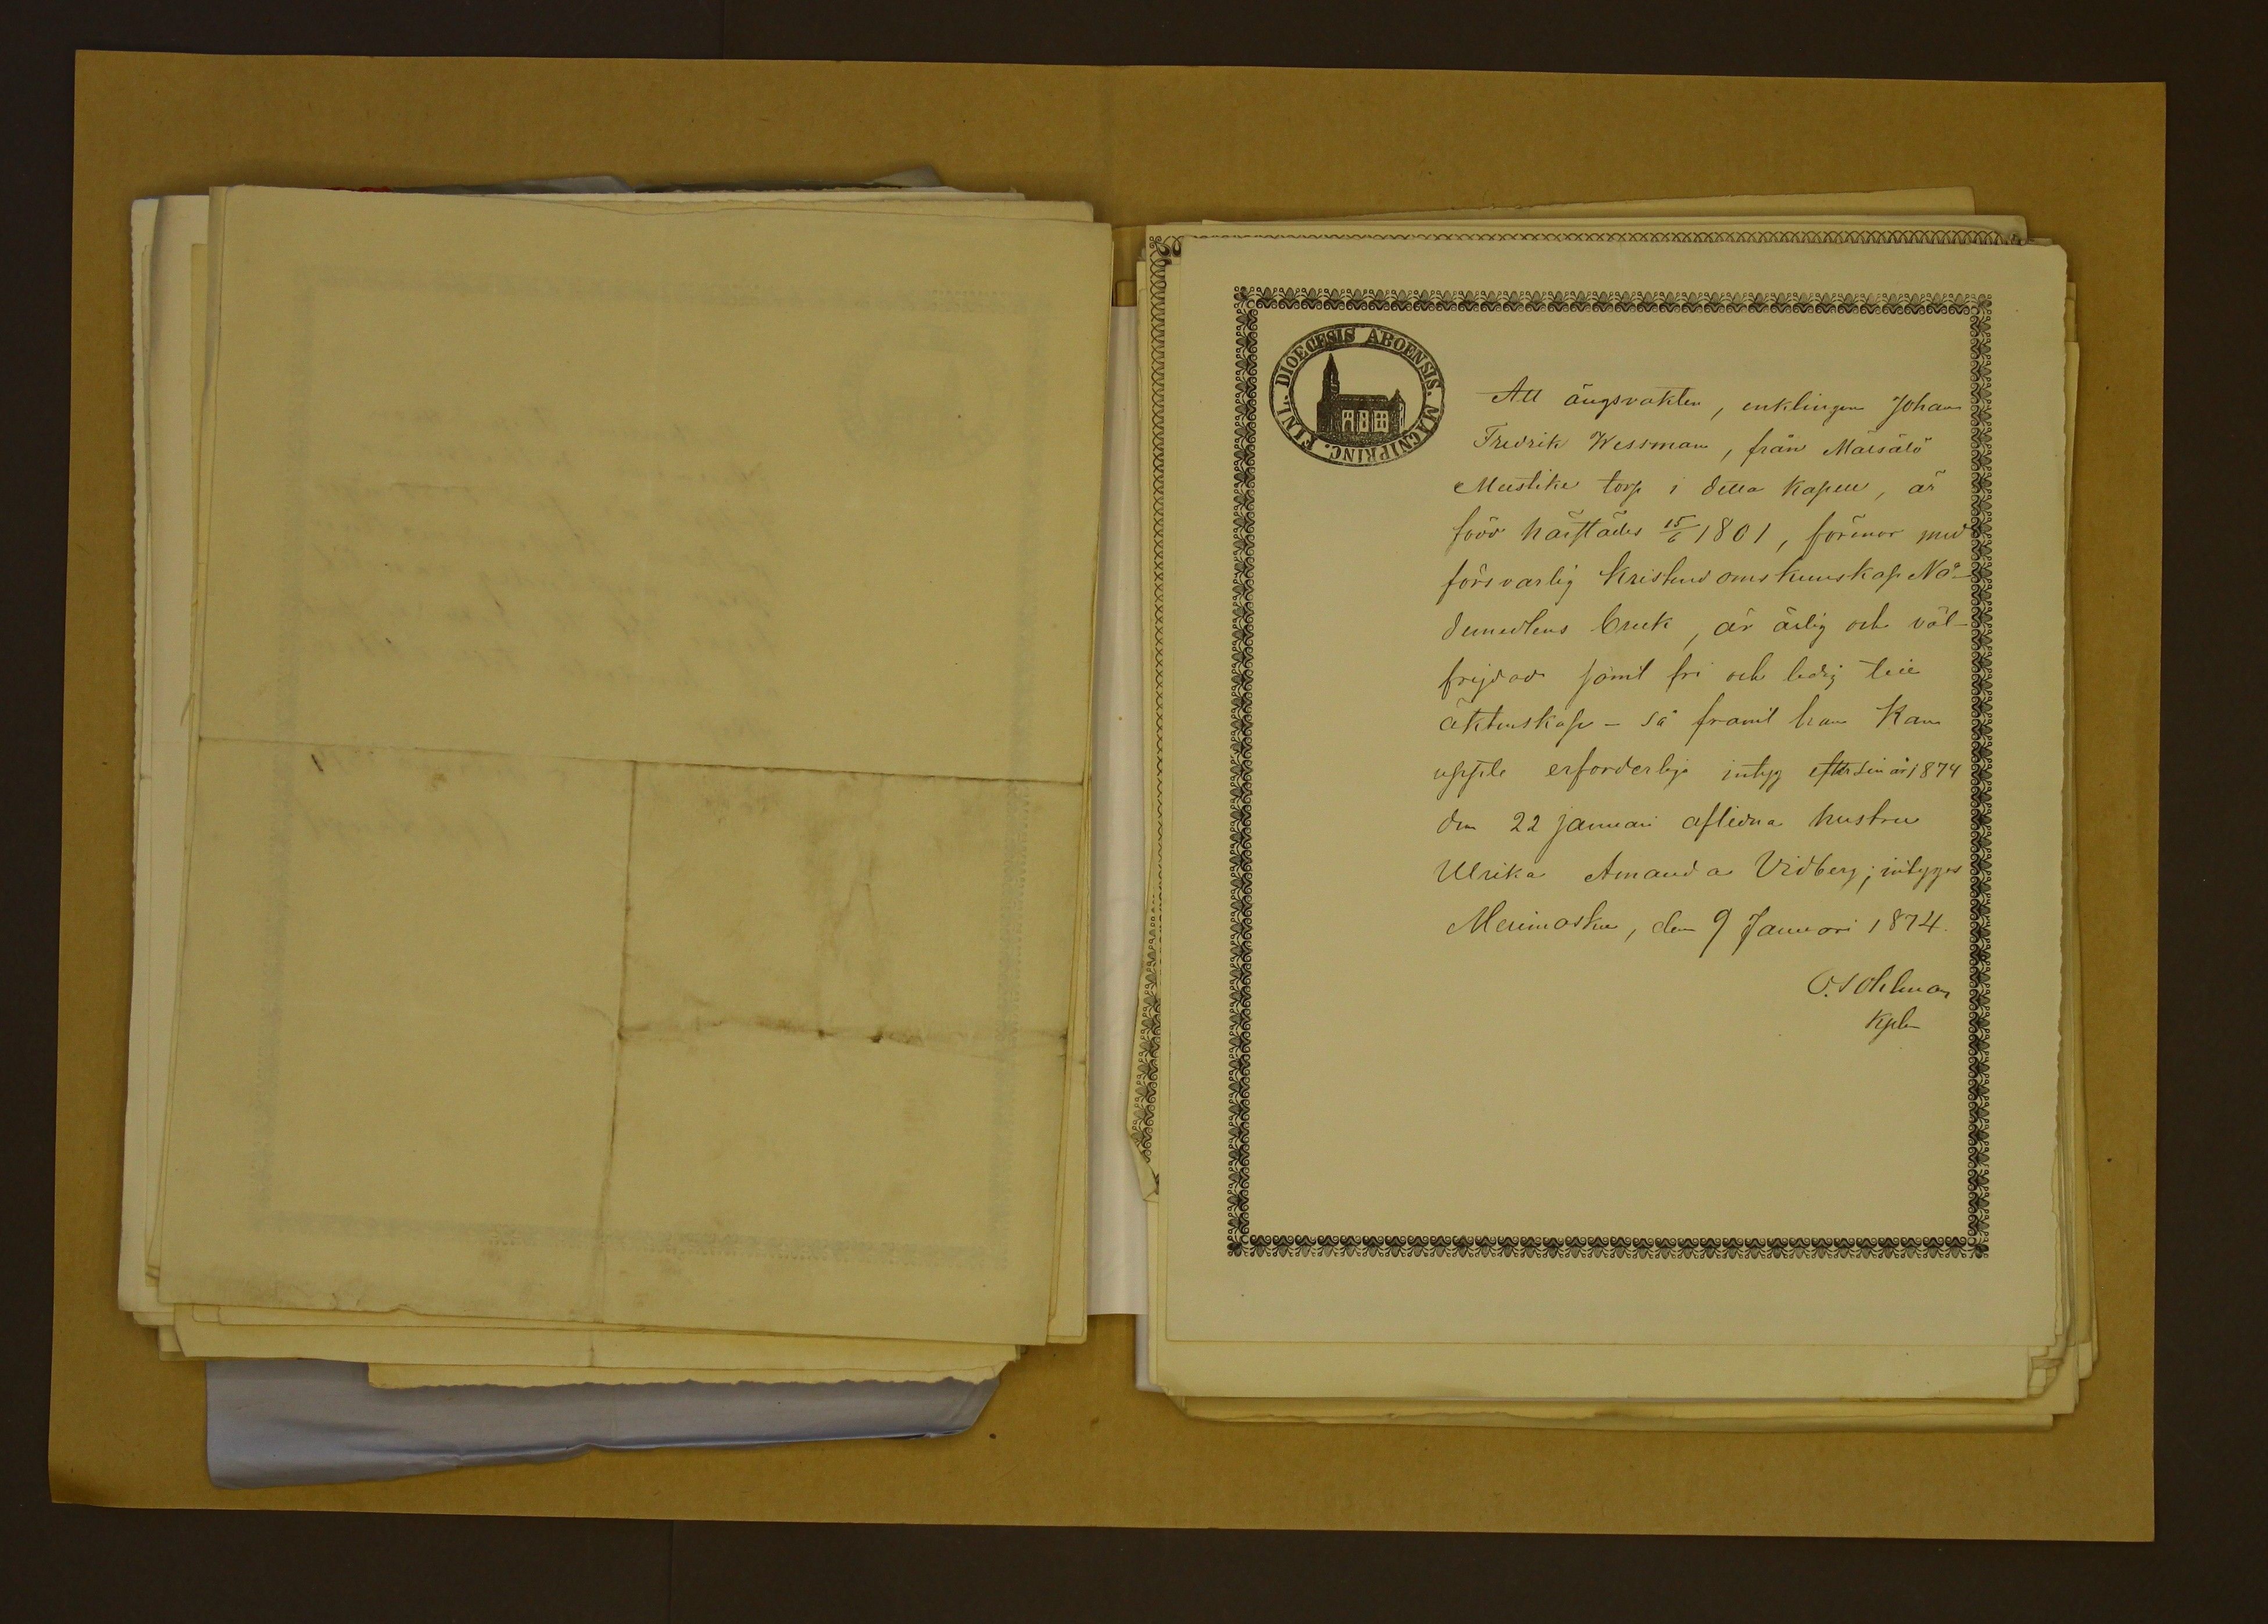 DIOECESIS ABOENSIS. MAGNIPRINC. FINL.
Att ängsvakten, enklingen Johan
Fredrik Wessman, från Maisalö
Mustike torp i detta Kapell, är
född härstädes 15/6 1801, förenar med
försvarlig Kristendomskunskap Nå-
demedlens bruk, är ärlig och väl-
frejdad samt fri och ledig till
äktenskap - så framt han Kan
uppte erforderliga intyg efter sin år 1874
den 22 januari aflidna hustru
Ulrika Amanda Vidberg; intygges
Merimasku, den 9 Januari 1874.
Ohlman
Kpln